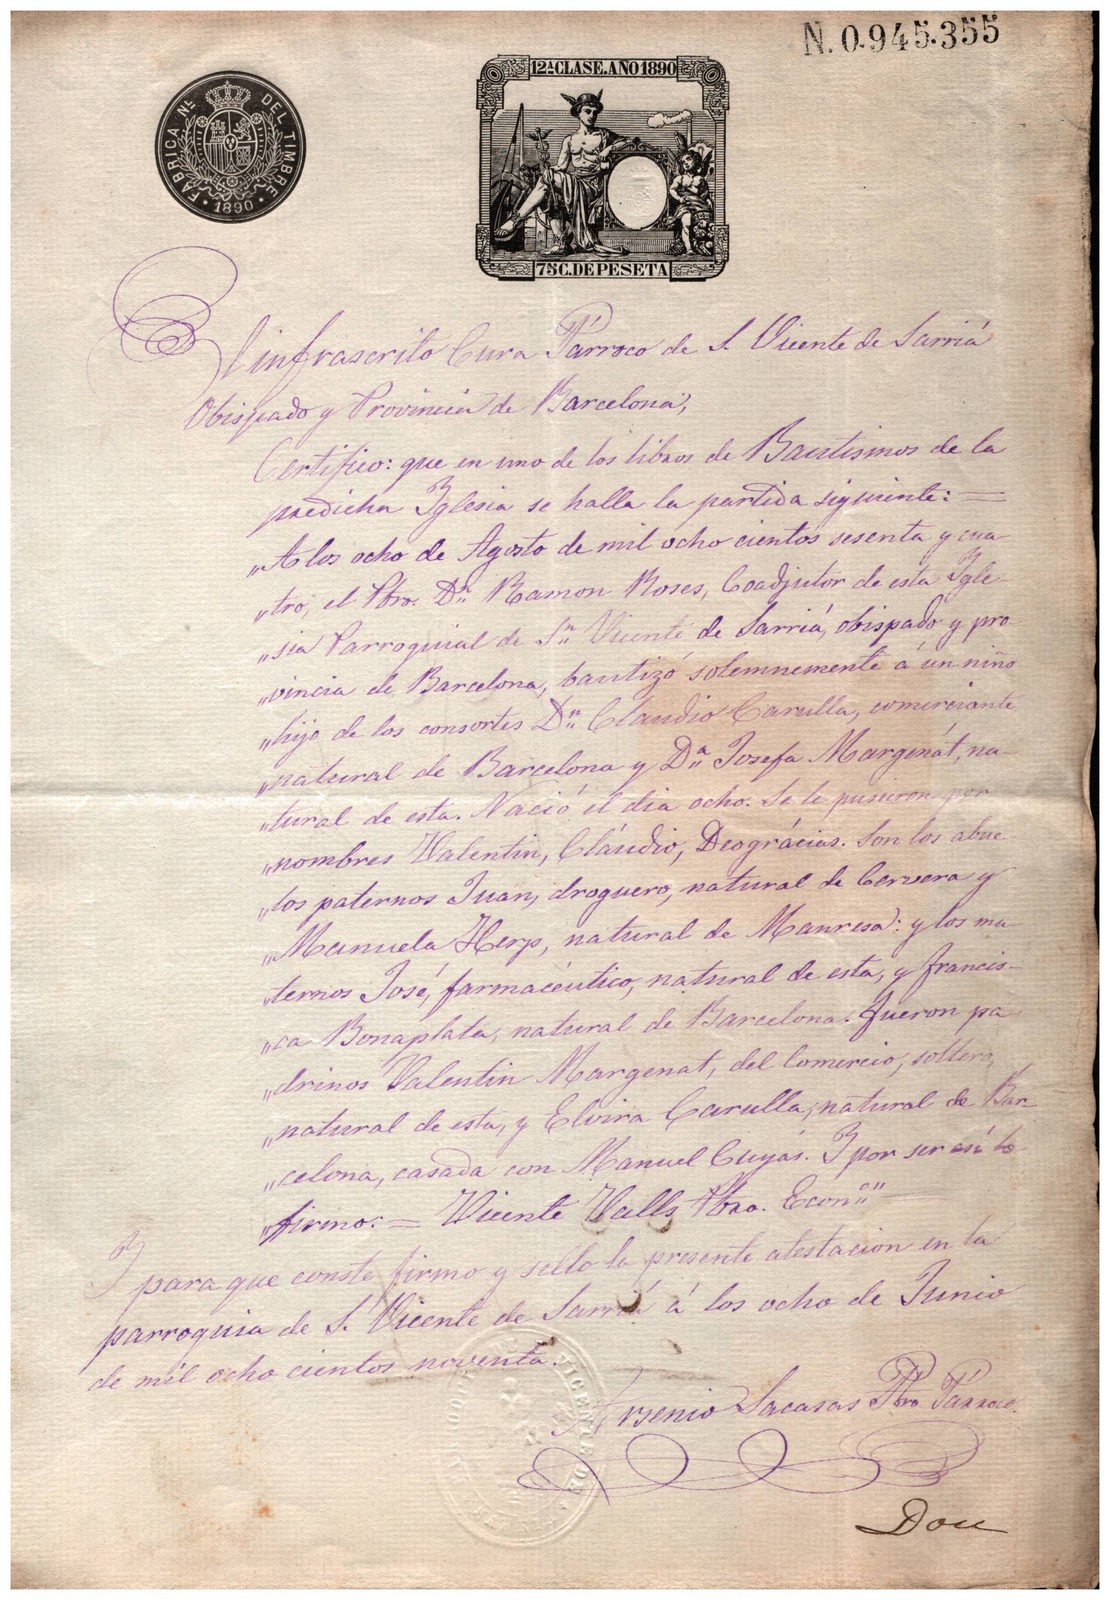 N. 0.945.355
12ª CLASE. AÑO 1890
FABRICA Nᴸ DEL TIMBRE
· 1890 ·
75 C. DE PESETA
El infrascrito Cura Párroco de S. Vicente de Sarriá
Obispado y Provincia de Barcelona,
Certifico: que en uno de los libros de Bautismos de la
predicha Iglesia se halla la partida siguiente: =
"A los ocho de Agosto de mil ocho cientos sesenta y cua-
"tro, el Pbro. Dn. Ramon Roses, Coadjutor de esta Igle-
"sia Parroquial de Sn. Vicente de Sarriá, obispado y pro
"vincia de Barcelona, bautizó solemnemente á un niño
"hijo de los consortes Dn. Claudio Carulla, comerciante
"natural de Barcelona y Dª Josefa Margenát, na-
"tural de esta. Nació el dia ocho. Se le pusieron por
"nombres Valentin, Cláudio, Deográcias. Son los abue-
"los paternos Juan, droguero, natural de Cervera y
"Manuela Herp, natural de Manresa: y los ma
"ternos José, farmacéutico, natural de esta, y Francis-
"ca Bonaplata, natural de Barcelona. Fueron pa
"drinos Valentin Margenat, del Comercio, soltero,
"natural de esta, y Elvira Carulla, natural de Bar-
"celona, casada con Manuel Cuyás. Y por ser asi lo
"firmo: = Vicente Valls Pbro. Econº"
Y para que conste firmo y sello la presente atestacion en la
parroquia de S. Vicente de Sarriá á los ocho de Junio
de mil ocho cientos noventa.
VICENTE DE
Arsenio Sacasas Pbro Párroco.
Dou